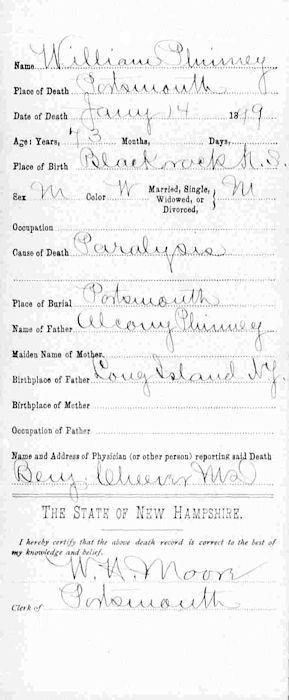 Name William Phinney
Place of Death Portsmouth
Date of Death Jany 14 1899
Age: Years, 73 Months, Days,
Place of Birth Blackrock N.S.
Sex M Color W Married, Single, Widowed, or Divorced, } M
Occupation
Cause of Death Paralysis
Place of Burial Portsmouth
Name of Father Phinney
Maiden Name of Mother
Birthplace of Father Long Island N.Y.
Birthplace of Mother
Occupation of Father
Name and Address of Physician (or other person) reporting said Death
Benj. Cheever MD
THE STATE OF NEW HAMPSHIRE.
I hereby certify that the above death record is correct to the best of
my knowledge and belief.
W. H. Moore
Clerk of Portsmouth